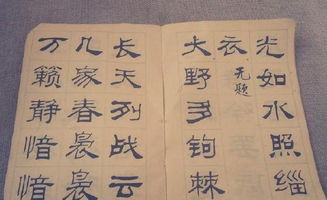 光如水照缁
衣
无题
大野多钩棘
长天列战云
几家春袅袅
万籁静愔愔